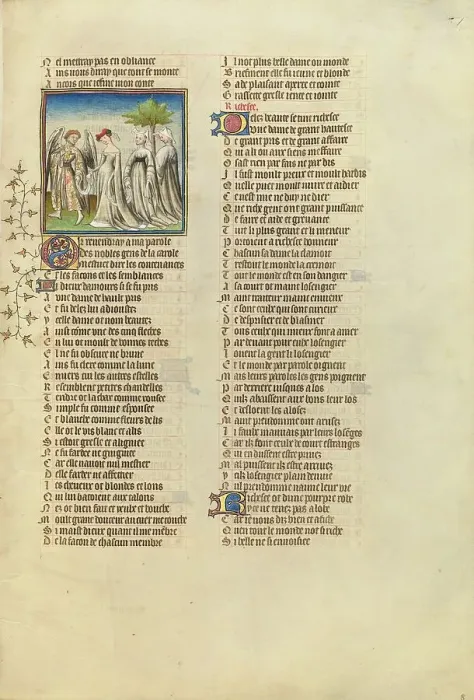 N el mettray pas en obliance
A ins vous diray que tout se monte
A ncois que je fine mon conte
O r reviendray a ma parole
D es nobles gens de la carole
M estuet dire les contenances
E t les facons et les semblances
L i dieux damours si se fu pris
A une dame de hault pris
E t fu delez lui adioustez
y celle dame ot nom beautez
A insi comme une des cinq flesches
E n lui ot moult de bonnes tesches
E l ne fu obscure ne brune
A ins fu clere comme la lune
E nuers cui les autres estelles
R esemblent petites chandelles
T endre ot la char comme rousee
S imple fu comme espousee
E t blanche comme fleurs de lis
E lle ot le vis blanc et alis
S i estoit gresle et alignee
N e fu fardee ne guignee
C ar elle nauoit nul mestier
D elle farder ne affetier
L es cheveux ot blondes et lons
Q ui lui batoient aux talons
N ez ot bien fait et yeulx et bouche
M oult grant doulceur au cuer me touche
S i maist dieux quant il me membre
D e la facon de chascun membre
I l not plus belle dame ou monde
B riefment elle fu ieune et blonde
S ade plaisant aperte et cointe
G rassette gresle iente et iointe
Richesse.
D elez beaute se tint richesse
U ne dame de grant hautesse
D e grant pris et de grant affaire
Q ui a li ou aux siens meffaire
O sast rien par fais ne par dis
I l fust moult preux et moult hardis
Q uelle puet moult nuire et aidier
C e nest mie ne duy ne dier
Q ue riche gent ont grant puissance
D e faire et aide et greuance
T uit li plus grant et li meneur
P ortoient a richesse honneur
C hascun sa dame la clamoit
T restout le monde la cremoit
T out le monde est en son dangier
A sa court ot maint losengier
M aint traiteur maint enuieux
C e sont ceulx qui sont curieux
D e desprisier et de blasmer
T ous ceulx qui mieux font a amer
P ar deuant pour eulx losengier
L ouent la gent li losengier
E t le monde par parole oignent
M ais leurs paroles les gens poignent
P ar derriere iusques a los
Q uilz abaissent aux bons leur los
E t desloent les aloses
M aint preudomme ont
I l faulx mauuais par leurs
C ar ilz font ceulx de court estranges
Q ui en deussent estre priuez
M al puissent ilz estre arriuez
y cilz losengier plain denuie
N ul preudomme naime leur vie
R ichesse ot dune pourpre robe
N e ne tenez pas a lobe
C ar ie vous diz bien et afiche
Q uen tout le monde not si riche
S i belle ne si enuoisiee